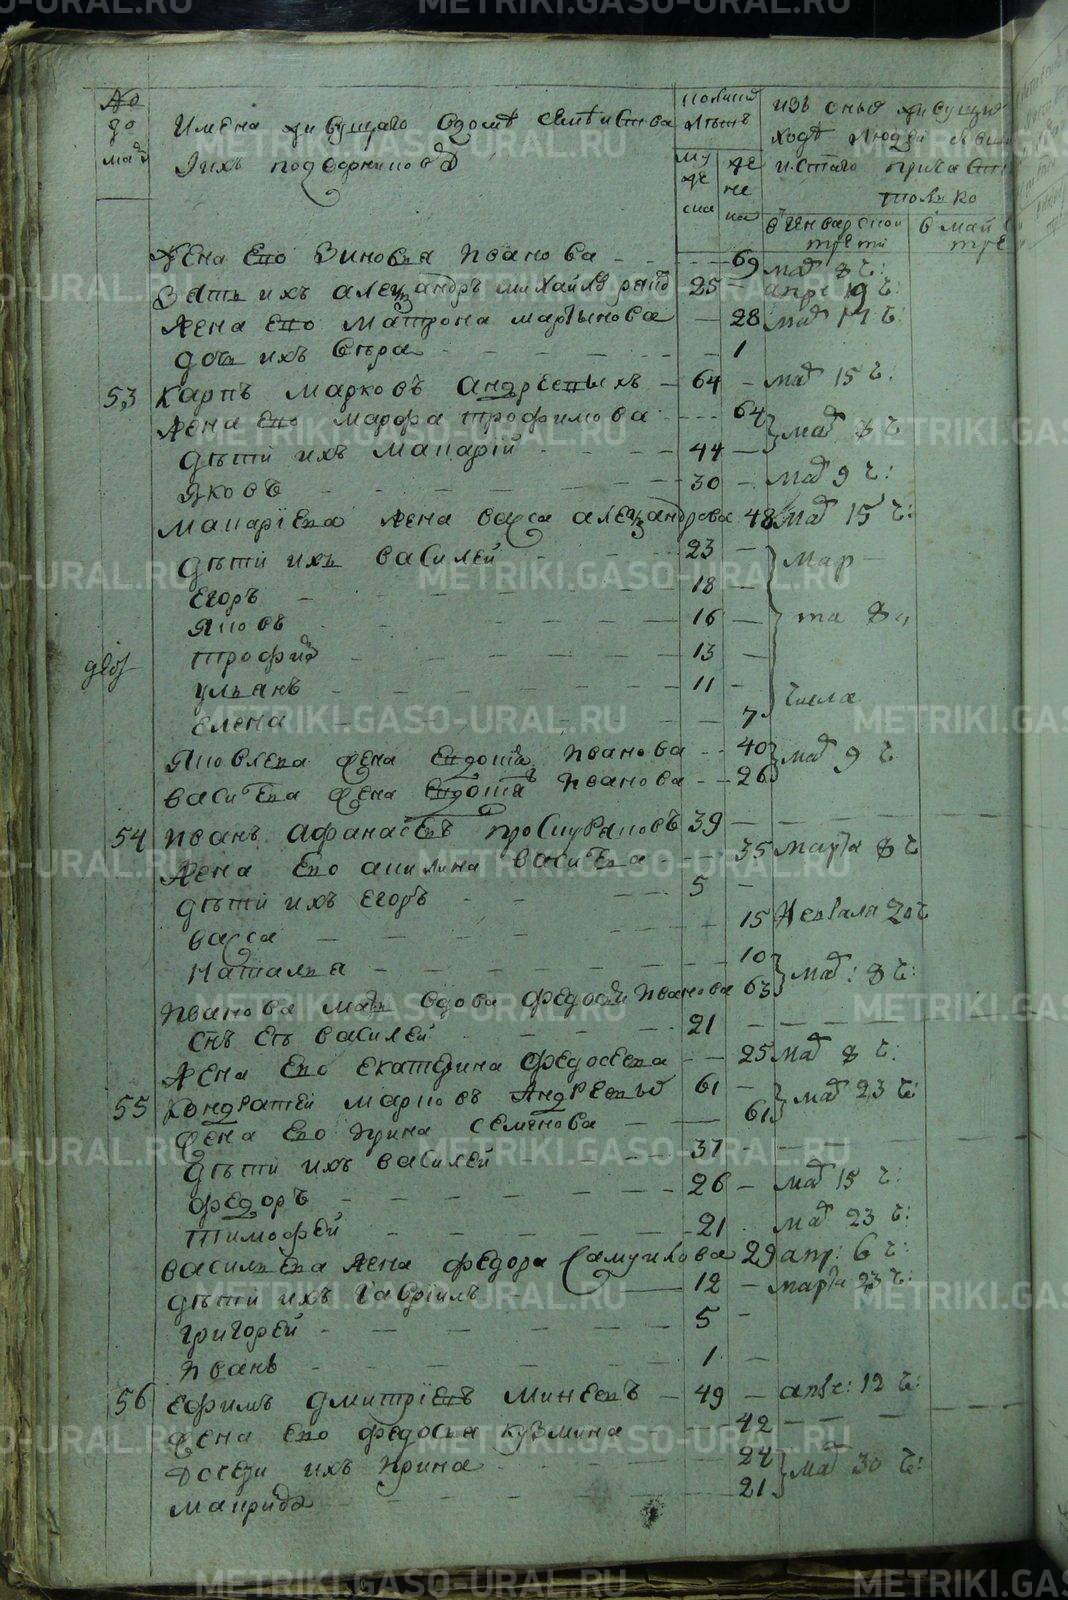 № домаⷨ
Имена живущаго вдомѣ семѣиства
Ихъ подворниковъ
колико лѣтъ
муже ска
же не ка
ваⷩварской трети
в май трет
только
Жена Его Зиновѣя Иванова - - 69 маⷬ 8 ч:
Зять ихъ Александръ Михайлѡ - 25 - апр: 19 ч:
Жена Его Матрона Мартынова - 28 маⷬ 17 ч:
дочь ихъ Вѣра - - - 1
53 Карпъ Марковъ Андреевыхъ - 64 - маⷬ 15 ч:
Жена Его Марфа Трофимова - - 64 маⷬ 8 ч
дѣти ихъ Макарій - - 44 -
Яковъ - - - 30 - маⷬ 9 ч:
Макарїева жена Васса Александрова 48 маⷬ 15 ч:
дѣти ихъ Василей - - 23 - Мар
Егоръ - - - 18 -
Яковъ - - - 16 - та 8
Трофиⷨ - - - 13 -
Ульянъ - - - 11 -
числа
Елена - - - 7
Яковлева жена Евдотья Иванова - - 40 маⷬ 9 ч
Василева жена Евдотья Иванова - - 26
54 Иванъ Афанасьевъ Проскуряковъ 39 - - -
Жена Его Акилина Василева - - 35 марта 8 ч
дѣти ихъ Егоръ - - 5 -
Васса - - - 15 Февраля 20 ч
Наталья - - - 10 маⷬ: 8 ч:
Иванова мать вдова Федосья Иванова 63
снъ Еѣ Василей - - 21 - - -
Жена Его Екатерина Федосеева - - 25 маⷬ 8 ч:
55 Кондратей Марковъ Андреевъ 61 - маⷬ 23 ч:
Жена Его Ирина Семенова - 61
дѣти ихъ Василей - - 37 - - -
Федоръ - - - 26 - маⷬ 15 ч:
Тимофей - - - 21 маⷬ 23 ч:
Васильева жена Федора Самуилова 29 апр: 6 ч:
дѣти ихъ Гаврїилъ - 12 - марта 23 ч:
Григорей - - - 5 -
Иванъ - - - 1 -
56 Ефимъ Дмитрїевъ Минеевъ - 49 - апр: 12 ч:
Жена Его Федосья Кузмина - - 42 - - -
Дочери ихъ Ирина - - - 24 маⷬ 30 ч:
Макрида - - - 21
METRIKI.GASO-URAL.RU